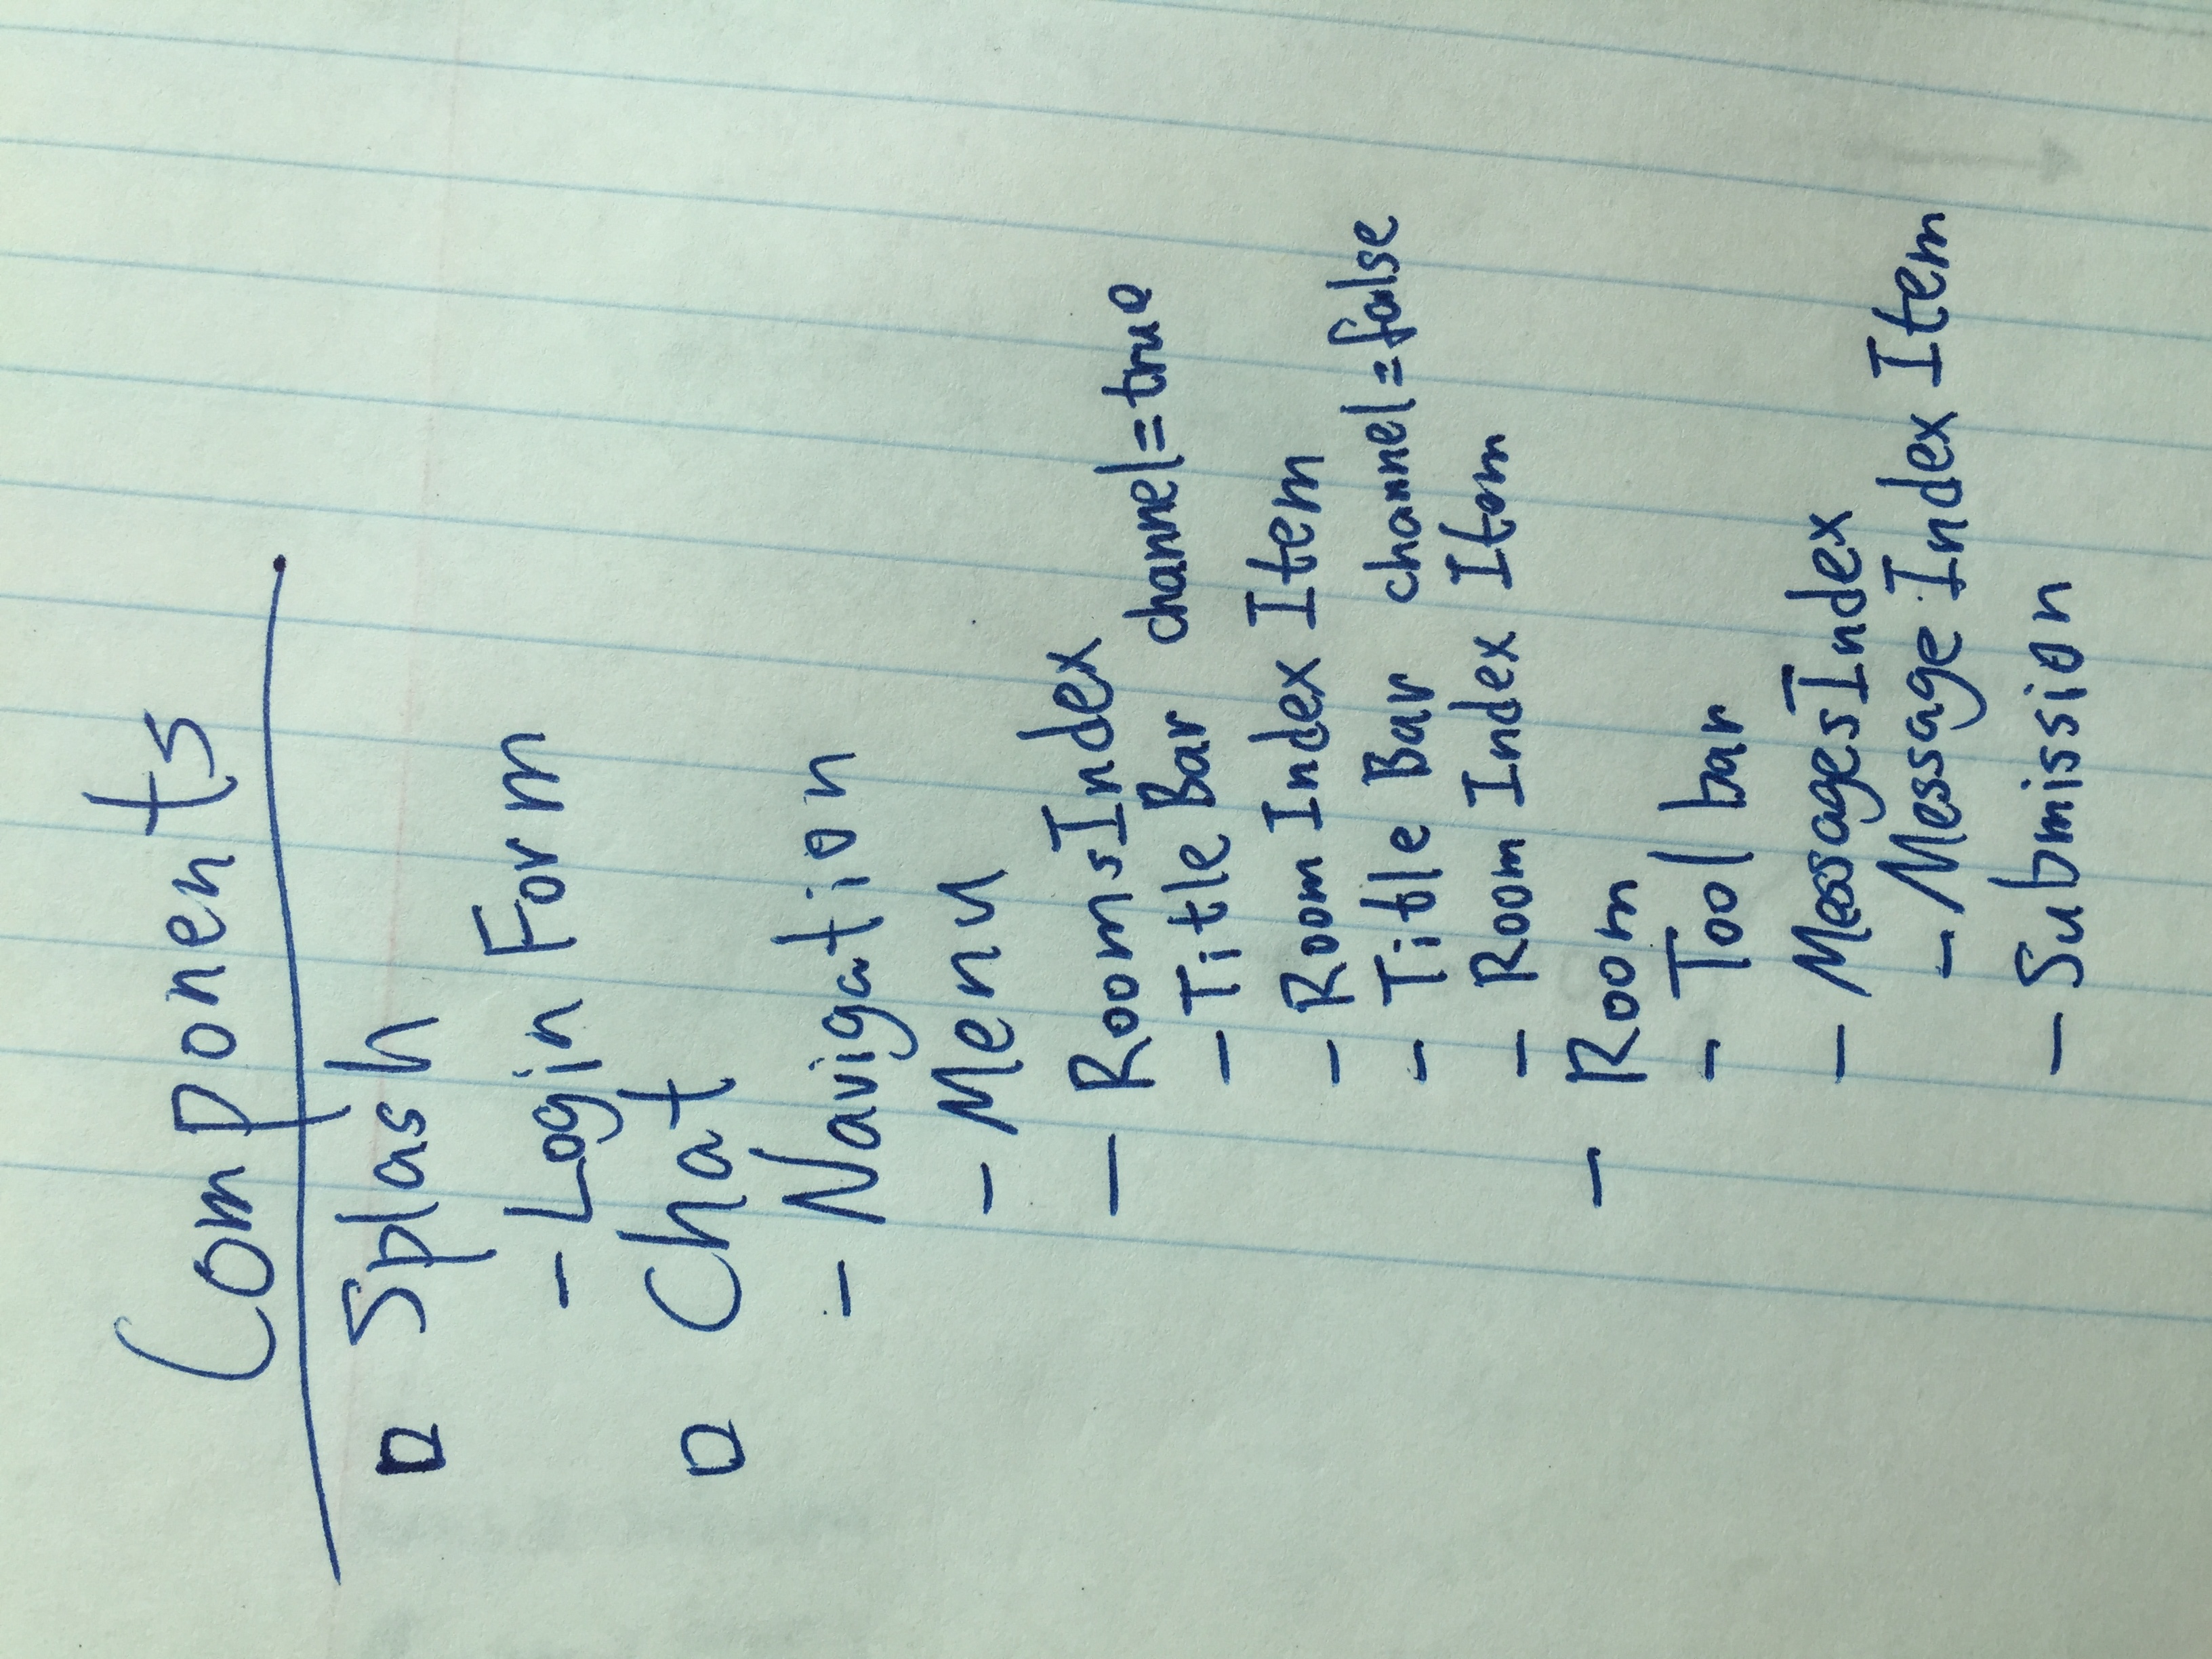 Components
Splash
- Login Form
Chat
- Navigation
- Menu
- RoomsIndex
- Title Bar channel=true
- Room Index Item
- Title Bar channel=false
- Room Index Item
- Room
- Tool bar
- MessagesIndex
- Message Index Item
- Submission